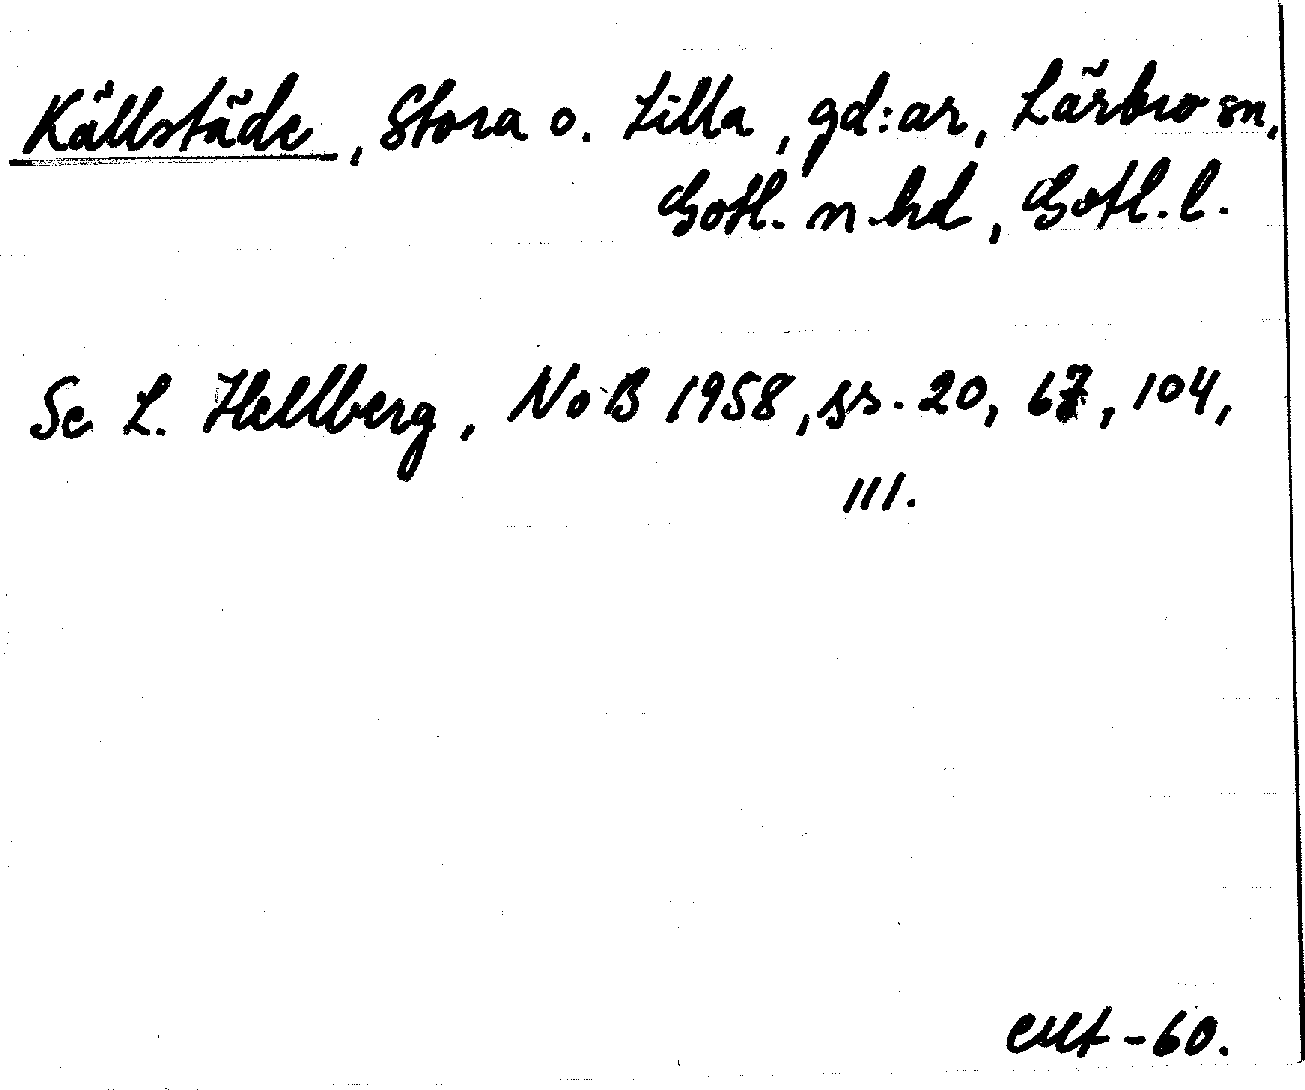 Källstäde, Stora o. Lilla, gd:ar, Lärbro sn,
Gotl. n. hd, Gotl. l.
Se L. Hellberg, NoB 1958, ss. 20, 67, 104,
111.
-60.